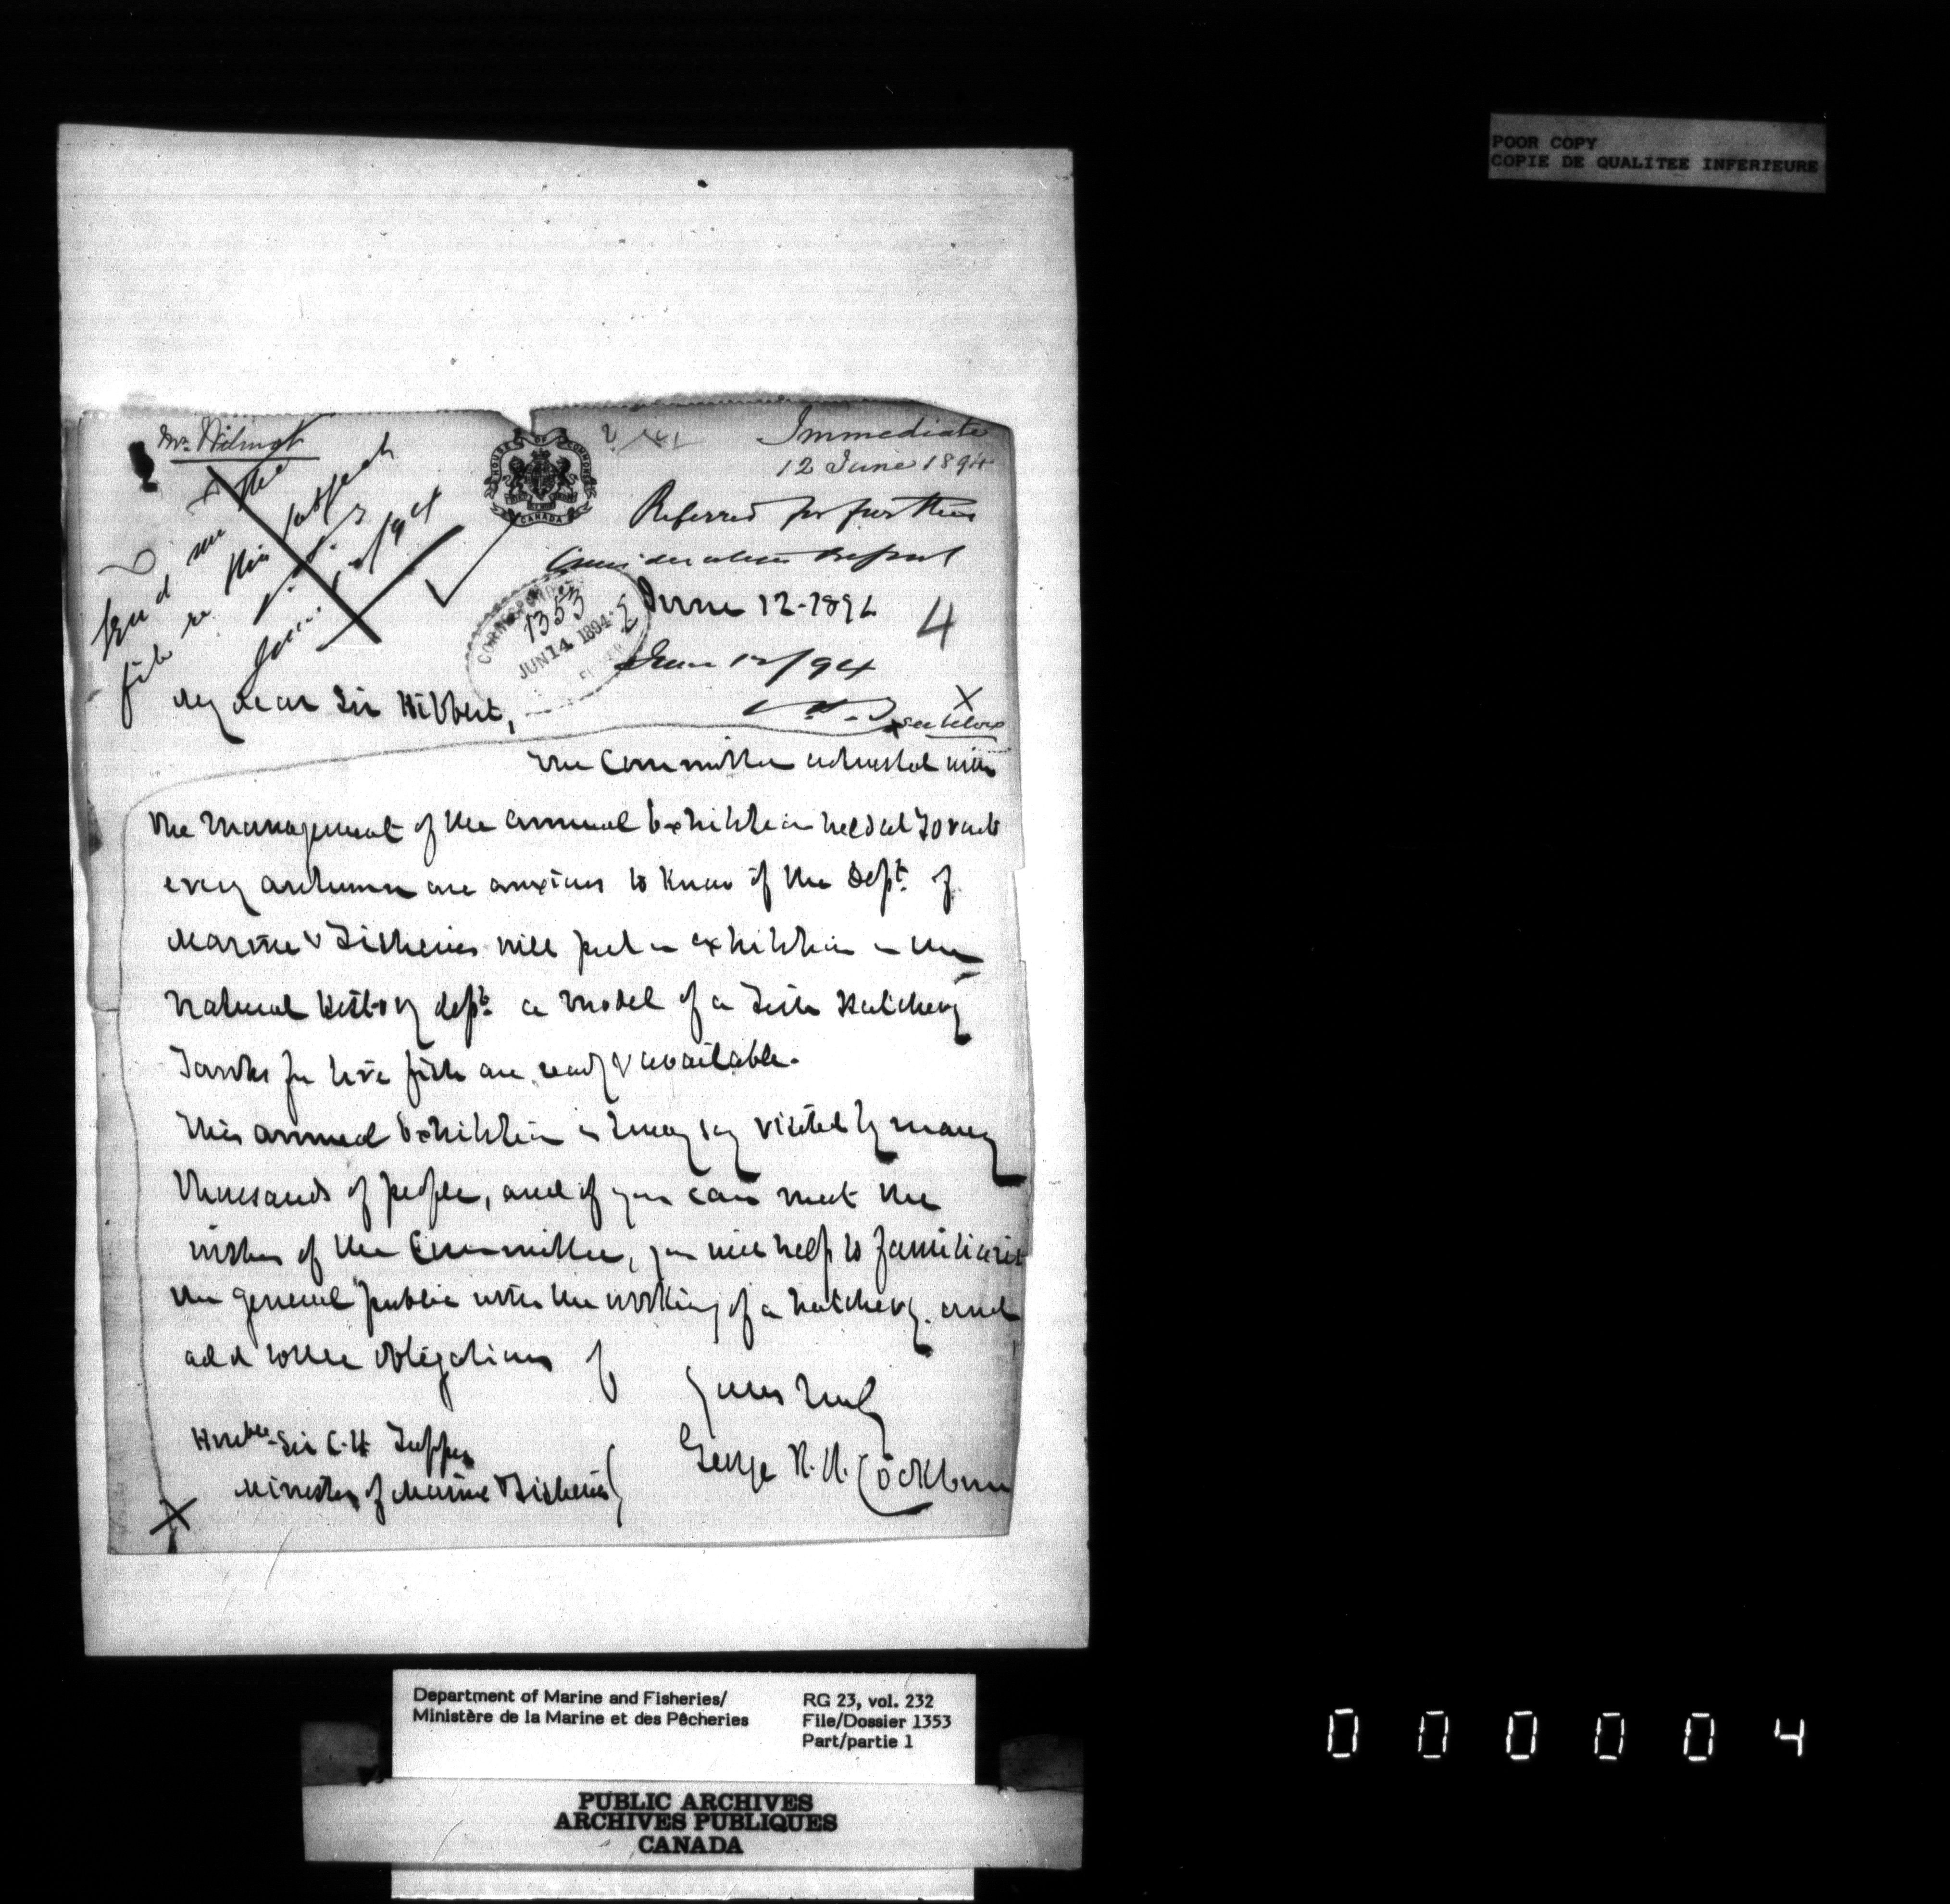 POOR COPY
COPIE DE QUALITEE INFERIEURE
Mr. Wilmot
Send me the
file re this subject
HOUSE OF COMMONS
CANADA
Immediate
12 June 1894
Referred for further
Consideration & Report
June 12/94
C.H.T.
CORRESPONDENCE
1353
JUN 14 1894
June 12-1894
4
X
see below
My dear Sir Hibbert,
The Committee entrusted with
the management of the annual Exhibition held at Toronto
every autumn are anxious to know if the Dept. of
Marine & Fisheries will put on exhibition in the
natural history dept. a model of a Fish Hatchery
Tanks for live fish are ready & available.
This annual Exhibition is I may say visited by many
thousands of people, and if you can meet the
wishes of the Committee, you will help to familiarize
the general public with the working of a hatchery. and
add to the obligations of
Yours truly
George R. R. Cockburn
Honble. Sir C. H. Tupper
Minister of Marine & Fisheries
X
Department of Marine and Fisheries/
Ministère de la Marine et des Pêcheries
RG 23, vol. 232
File/Dossier 1353
Part/partie 1
PUBLIC ARCHIVES
ARCHIVES PUBLIQUES
CANADA
0 0 0 0 0 4